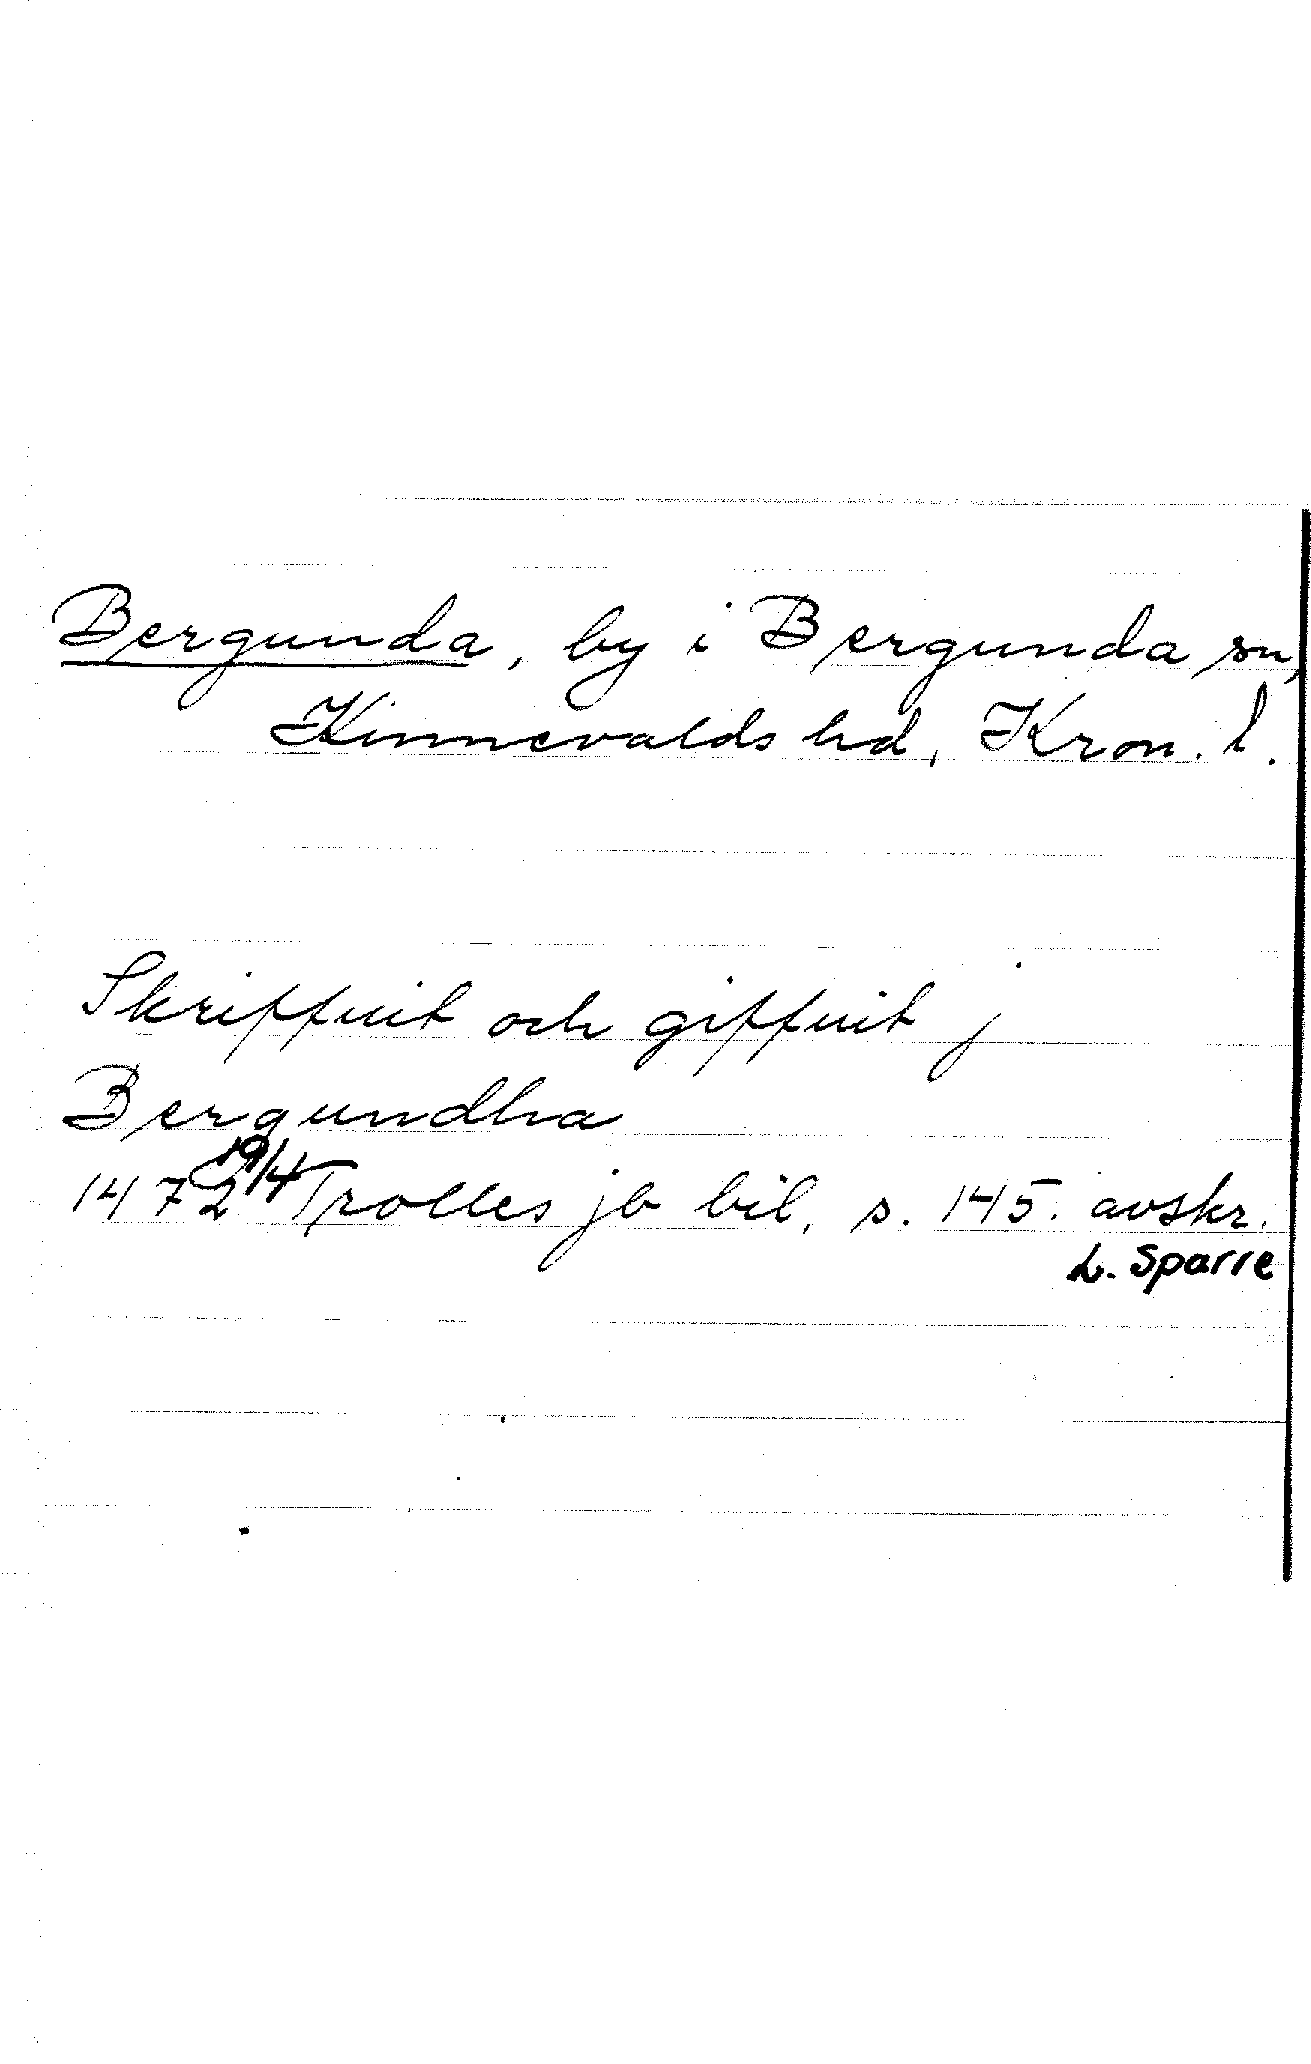 Bergunda, by i Bergunda sn,
Kinnevalds hd, Kron. l.
Skriffuit och giffuit j
Bergundha
1472 19/4 Trolles jb bil. s. 145. avskr.
L. Sparre